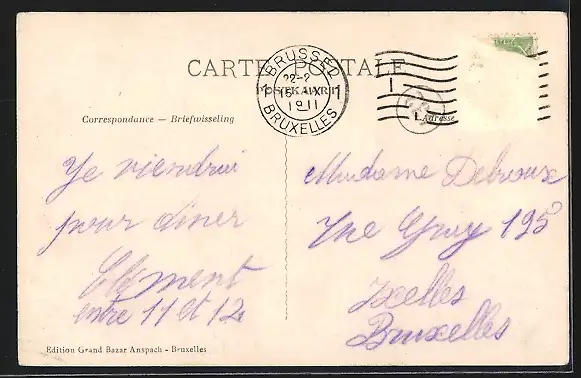 CARTE POSTALE
POSTKAART
1 BRUSSEL 1
22-2
15 IX
1911
BRUXELLES
Correspondance — Briefwisseling
Adresse
Je viendrai
pour diner
Clément
entre 11 et 12
Madame Debroux
Rue Gray 195
Ixelles
Bruxelles
Edition Grand Bazar Anspach - Bruxelles